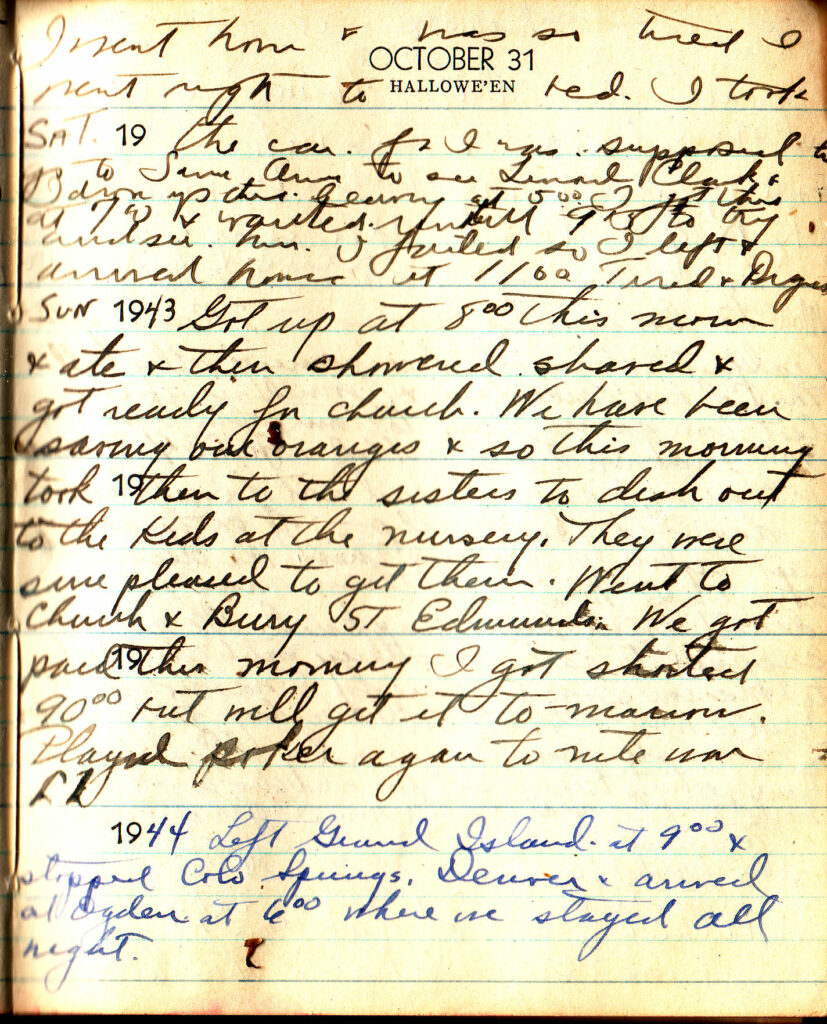 I went home & was so tired I
OCTOBER 31
HALLOWE'EN
went right to bed. I took
SAT. 19 the car. for I was supposed to
go to Santa Ana to see Clark &
this evening at 5:00 I got this
at 7:30 & waited until 9 to try
and see him. I failed so I left &
arrived home at 11 00 Tired &
SUN 1943 Got up at 8 00 this morn
& ate & then showered shaved &
got ready for church. We have been
saving our oranges & so this morning
took 19 them to the sisters to dish out
to the Kids at the nursery. They were
sure pleased to get them. Went to
Church & Bury ST Edmunds. We got
paid 19 this morning I got shorted
90 00 but will get it to-morrow.
Played poker again to nite won
£1
1944 Left Grand Island. at 9 00 &
stopped Colo Springs, Denver & arrived
at Ogden at 6 00 where we stayed all
night.